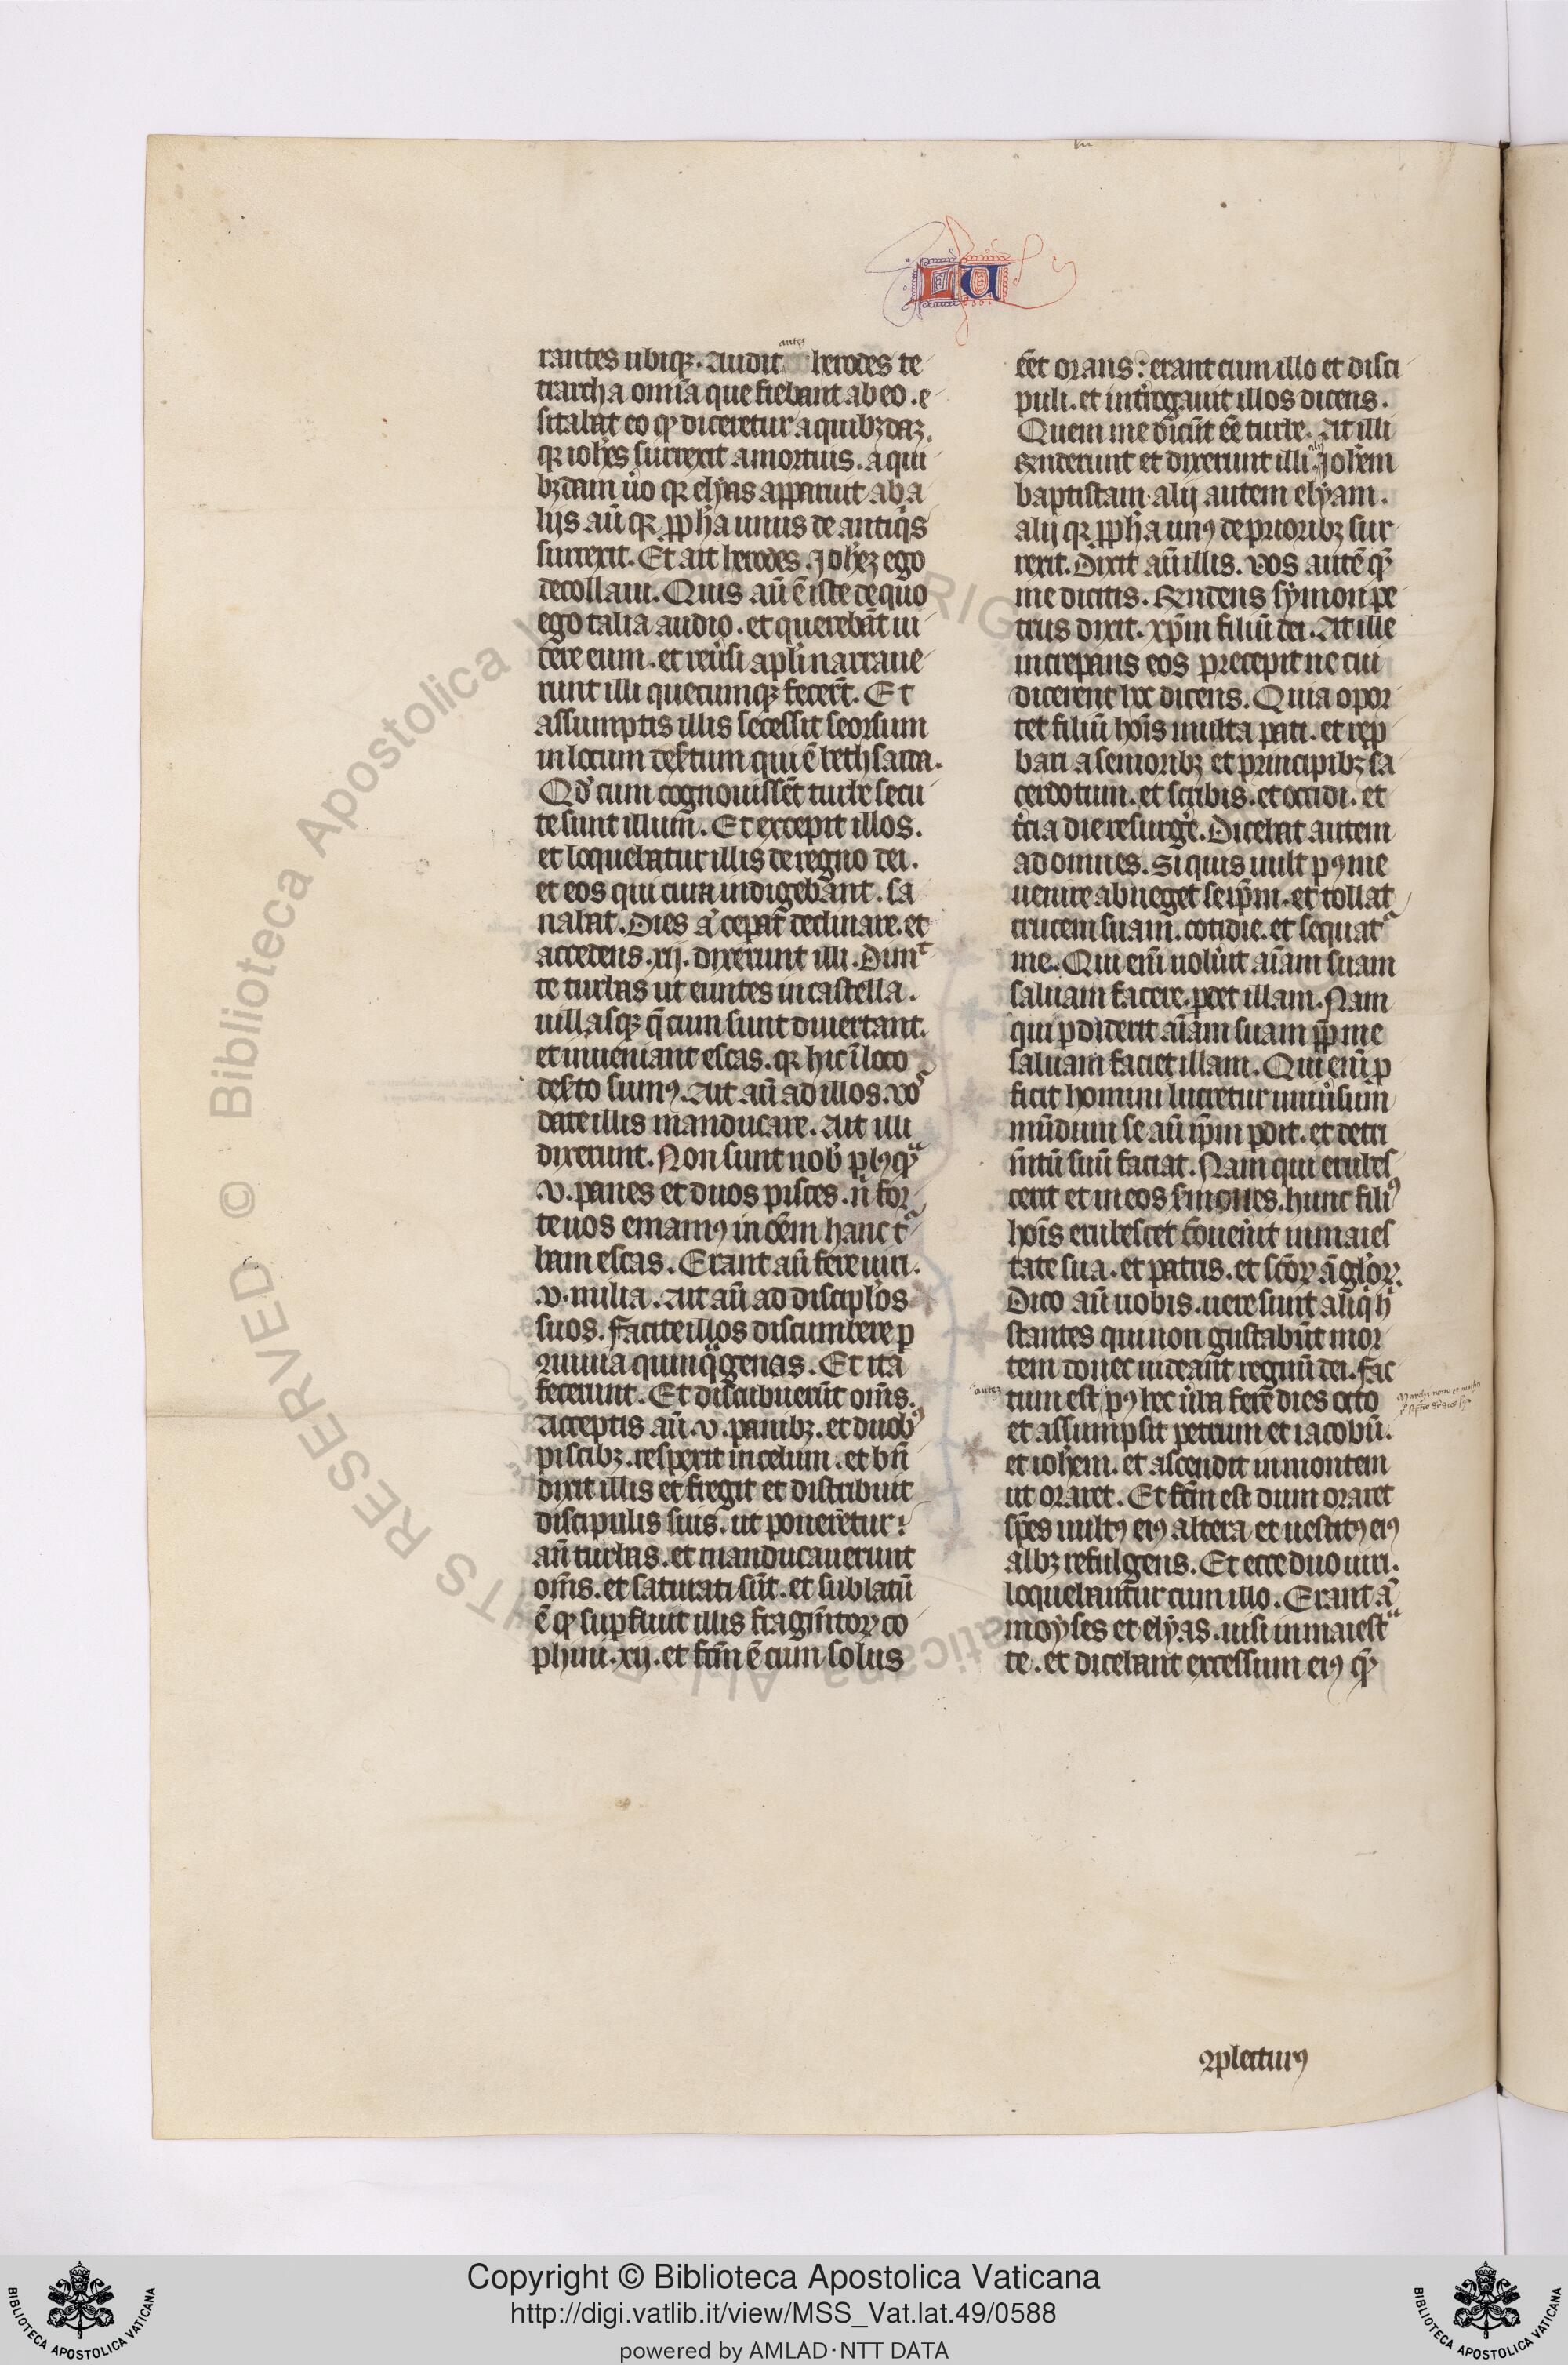 LU
autem
rantes ubiqꝫ. Audit herodes te
trarcha om̄ia que fiebant ab eo. e
sitabat eo ꝙ diceretur a quibꝫdaꝫ.
qꝛ ioh̄es surrexit a mortuis. a qui
bꝫdam u̓o qꝛ elyas apparuit ab a
lijs aū qꝛ ꝓph̄a unus de antiqⁱs
surrexit. Et ait herodes. Joh̄eꝫ ego
decollaui. Quis aū ē iste de quo
ego talia audio. et querebāt ui
dere eum. et reu̓si apl̓i narraue
runt illi quecumqꝫ fecer̄t. Et
assumptis illis secessit seorsum
in locum des̓tum qui ē bethsaida.
Qd̓ cum cognouissēt turbe secu
te sunt illum. Et excepit illos.
et loquebatur illis de regno dei.
et eos qui cura indigebant. sa
nabat. Dies aͫ cep̓at declinare. et
accedens. xij. dixerunt illi. Dimᵗ
te turbas ut euntes in castella.
uillasqꝫ q̄ cum sunt diuertant.
et inueniant escas. qꝛ hic ī loco
des̓to sumꝰ. Ait aū ad illos. Voˢ
date illis manducare. At illi
dixerunt. Non sunt nob̓ plꝰqᵃ̄
.v. panes et duos pisces. n̄ for
te nos emamꝰ in oēm hanc t̓
bam escas. Erant aū fere uiri.
.v. milia. Ait aū ad discipl̓os
suos. Facite illos discumbere ꝑ
ꝯuiuia quinqᵃgenas. Et ita
fecerunt. Et discubuerūt om̄s.
Acceptis aū .v. panibꝫ. et duobꝰ
piscibꝫ. respexit in celum. et bn̄
dixit illis et fregit et distribuit
discipulis suis. ut poneretur
an̄ turbas. et manducauerunt
om̄s. et saturati sūt. et sublatū
ē ꝙ suꝑfuit illis fragm̄toꝝ co
phini. xij. et fcm̄ ē cum solus
eēt orans: erant cum illo et disci
puli. et int̓rogauit illos dicens.
Quem me dicūt eē turbe. At illi
Rn̄derunt et dixerunt illi Joh̄em
baptistam. alij autem elyam.
alij qꝛ ꝓph̄a unꝰ de prioribꝫ sur
rexit. Dixit aū illis. Vos autē qᵉ̄
me dicitis. Rn̄dens symon pe
trus dixit. xp̄m filiū dei. At ille
increpans eos precepit ne cui
dicerent hoc dicens. Quia opor
tet filiū hoīs multa pati. et reꝓ
bari a senioribꝫ et principibꝫ sa
cerdotum. et scribis. et occidi. et
t̓cia die resurge̓. Dicebat autem
ad omnes. Si quis uult pꝰ me
uenire abneget seip̄m. et tollat
crucem suam. cotidie. et sequatᷣ
me. Qui eni̅ uolu̓it aīam suam
saluam facere. ꝑdet illam. Nam
qui ꝑdiderit aīam suam ꝓp̄ me
saluam faciet illam. Qui eni̅ ꝓ
ficit homini lucretur uniu̓sum
mūdum se aū ip̄m ꝑdit. et detri
m̄tū suū faciat. Nam qui erubes
cerit et meos s̓mones. hunc filiꝰ
hoīs erubescet c̄ uenerit in maies
tate sua. et patris. et sc̄oꝝ āgl̓oꝝ.
Dico aū uobis. uere sunt aliqⁱ hᶜ
stantes qui non gustabūt mor
tem donec uideant regnū dei. Fac
autem
tum est pꝰ hec u̓ba fere dies octo
et assumpsit petrum et iacobū.
et ioh̄em. et ascendit in montem
ut oraret. Et fcm̄ est dum oraret
sp̄es uultꝰ eiꝰ altera et uestitꝰ eiꝰ
albꝫ refulgens. Et ecce duo uiri.
loquebantur cum illo. Erant aͫ
moyses et elyas. uisi in maiestᵃ
te. et dicebant excessum eiꝰ qᵉ̄
ꝯpleturꝰ
© Biblioteca Apostolica Vaticana ALL RIGHTS RESERVED
Copyright © Biblioteca Apostolica Vaticana
http://digi.vatlib.it/view/MSS_Vat.lat.49/0588
powered by AMLAD·NTT DATA
BIBLIOTECA APOSTOLICA VATICANA
BIBLIOTECA APOSTOLICA VATICANA